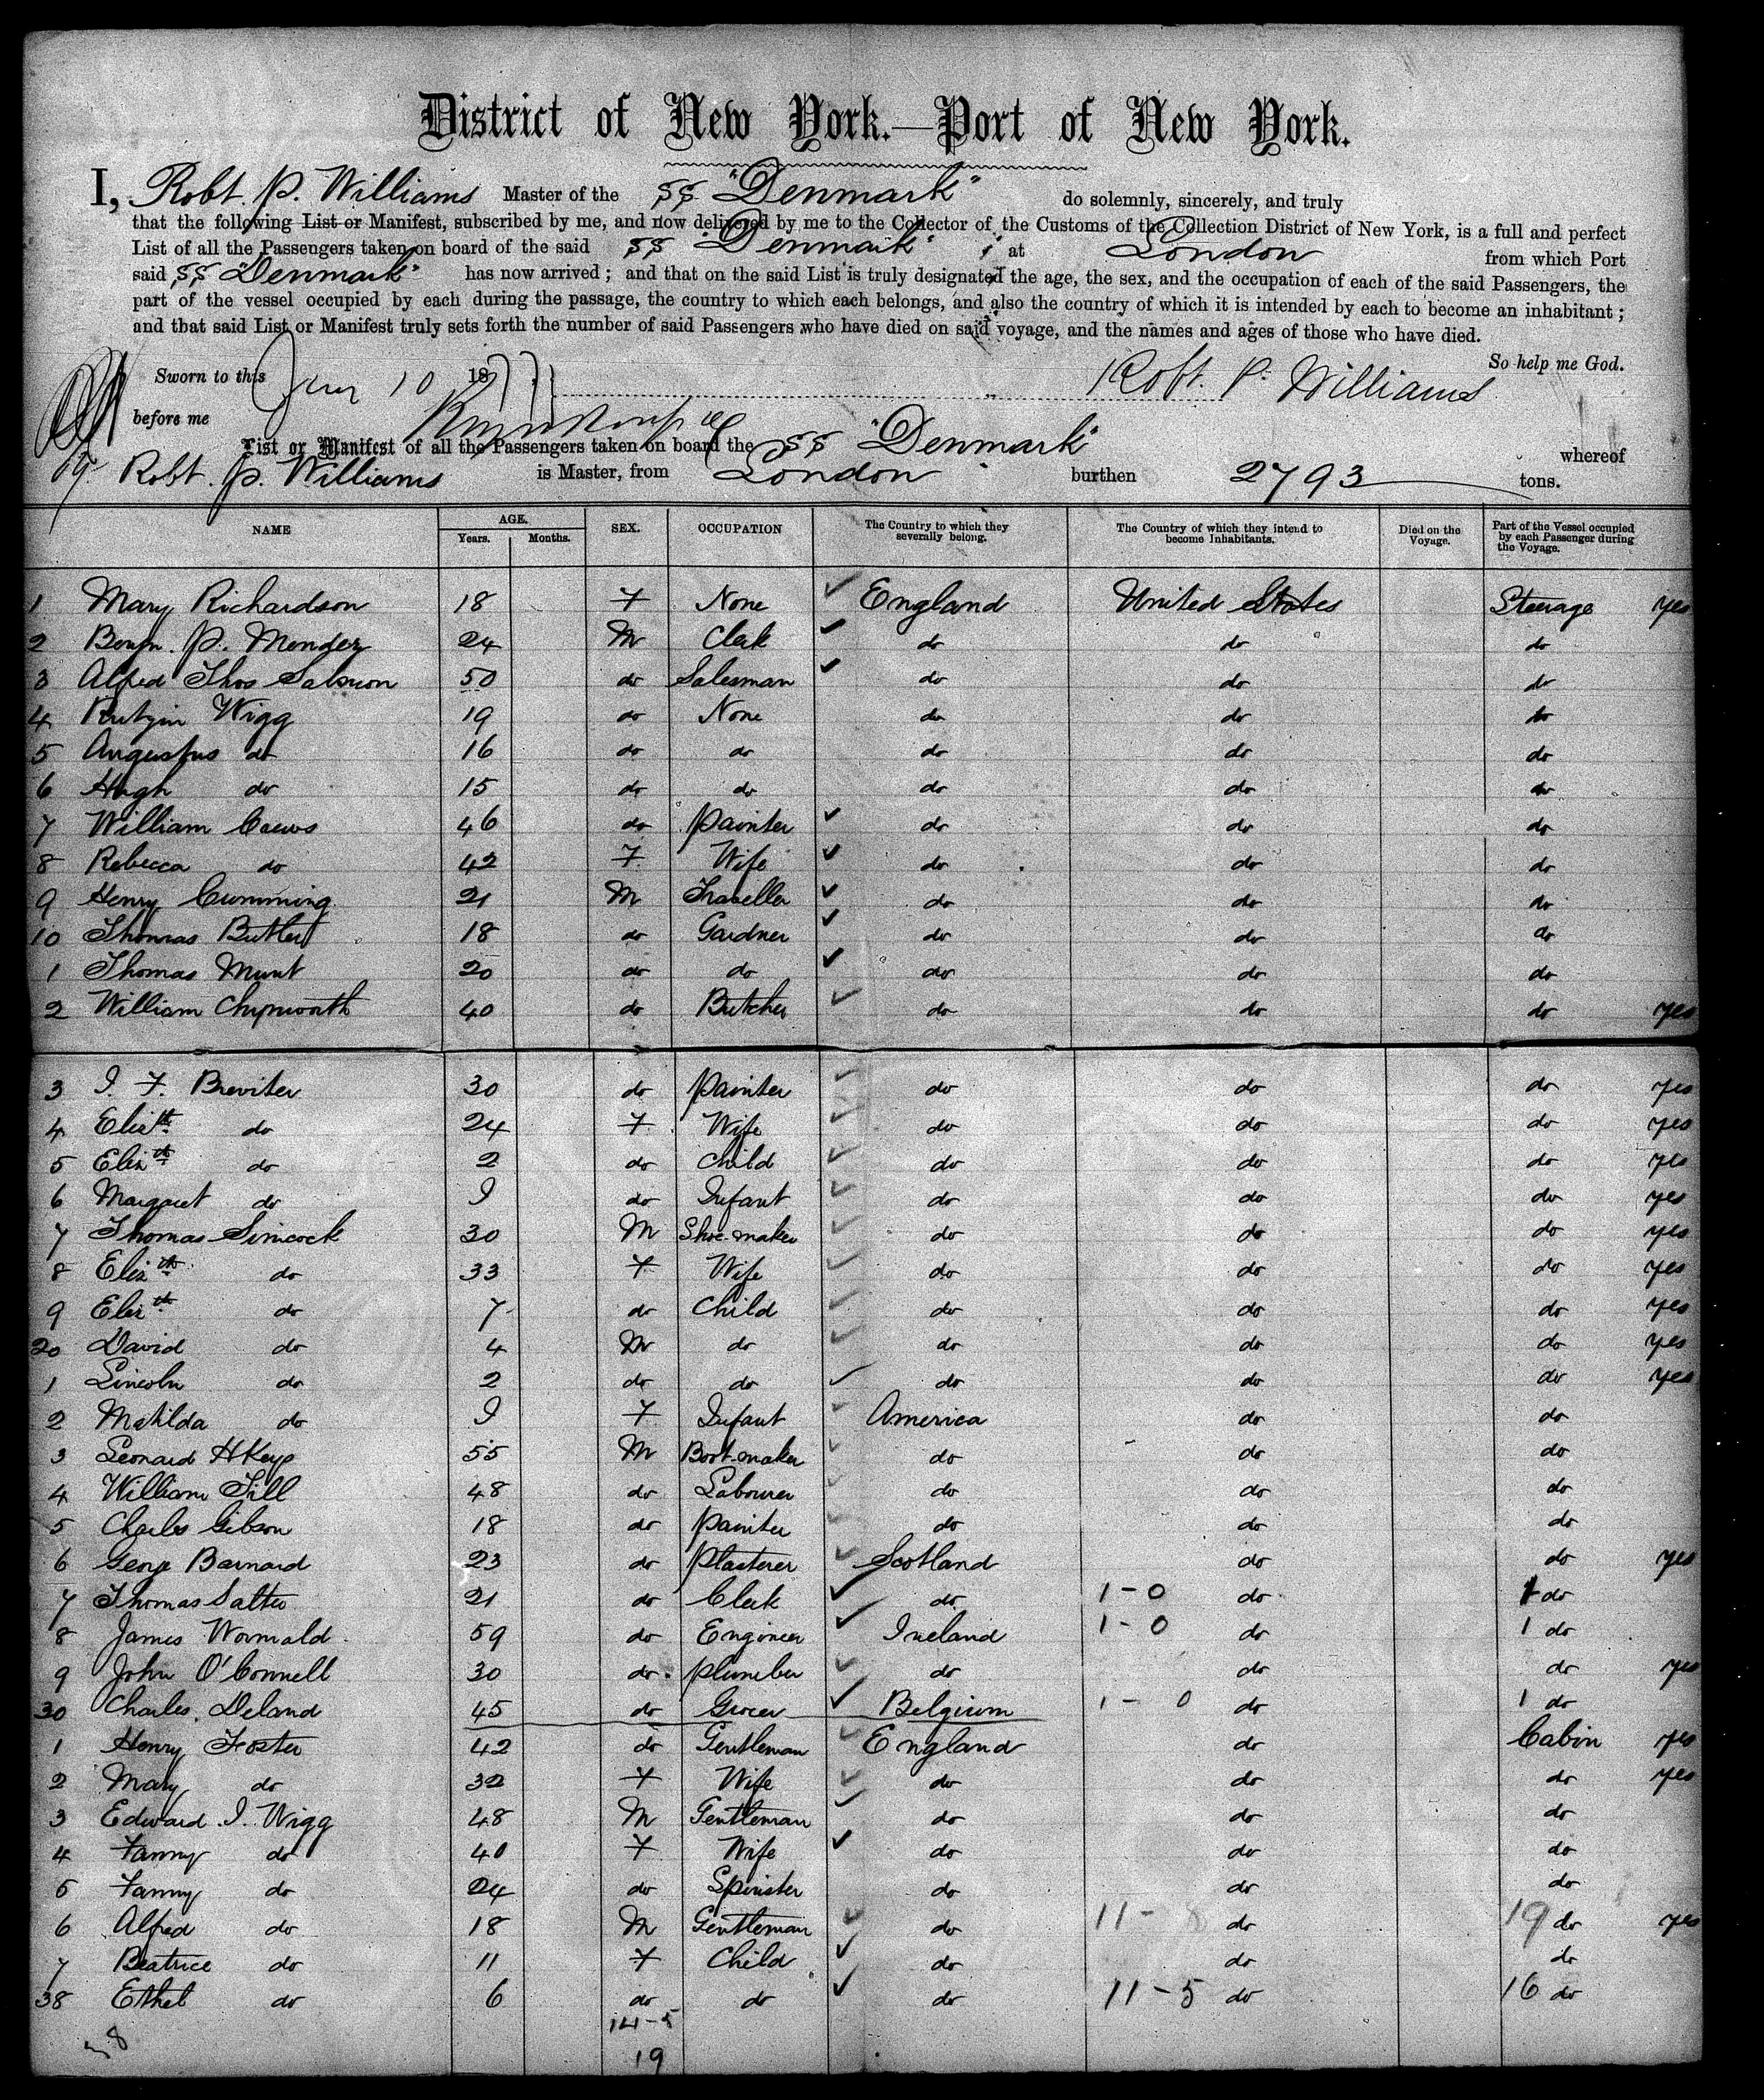 District of New York.—Port of New York.
I, Robt. P. Williams Master of the SS "Denmark" do solemnly, sincerely, and truly
that the following List or Manifest, subscribed by me, and now delivered by me to the Collector of the Customs of the Collection District of New York, is a full and perfect
List of all the Passengers taken on board of the said SS "Denmark" at London from which Port
said SS "Denmark" has now arrived; and that on the said List is truly designated the age, the sex, and the occupation of each of the said Passengers, the
part of the vessel occupied by each during the passage, the country to which each belongs, and also the country of which it is intended by each to become an inhabitant;
and that said List or Manifest truly sets forth the number of said Passengers who have died on said voyage, and the names and ages of those who have died.
So help me God.
Sworn to this 10 18 Robt. P. Williams
before me
List or Manifest of all the Passengers taken on board the SS "Denmark" whereof
Robt. P. Williams is Master, from London burthen 2793 tons.
NAME AGE. Years. Months. SEX. OCCUPATION The Country to which they severally belong. The Country of which they intend to become Inhabitants. Died on the Voyage. Part of the Vessel occupied by each Passenger during the Voyage.
1 Mary Richardson 18 F None England United States Steerage yes
2 Benjn. P. Mendez 24 M Clerk do do do
3 Alfred Thos Salmon 50 do Salesman do do do
4 Wigg 19 do None do do do
5 Augustus do 16 do do do do do
6 Hugh do 15 do do do do do
7 William Crews 46 do Painter do do do
8 Rebecca do 42 F Wife do do do
9 Henry Cumming 21 M Traveller do do do
10 Thomas Butler 18 do Gardner do do do
1 Thomas Munt 20 do do do do do
2 William Chipworth 40 do Butcher do do do yes
3 I. F. Breviter 30 do Painter do do do yes
4 Elizth do 24 F Wife do do do yes
5 Elizth do 2 do Child do do do yes
6 Margaret do I do Infant do do do yes
7 Thomas Simcock 30 M Shoe-maker do do do yes
8 Elizth do 33 F Wife do do do yes
9 Elizth do 7 do Child do do do yes
20 David do 4 M do do do do yes
1 Lincoln do 2 do do do do do yes
2 Matilda do I F Infant America do do
3 Leonard H Keys 55 M Boot-maker do do do
4 William Till 48 do Labourer do do do
5 Charles Gibson 18 do Painter do do do
6 George Barnard 23 do Plasterer Scotland do do yes
7 Thomas Salter 21 do Clerk do 1-0 do 1 do
8 James Wormald 59 do Engineer Ireland 1-0 do 1 do
9 John O'Connell 30 do Plumber do do do yes
30 Charles Deland 45 do Grocer Belgium 1-0 do 1 do
1 Henry Foster 42 do Gentleman England do Cabin yes
2 Mary do 32 F Wife do do do yes
3 Edward I. Wigg 48 M Gentleman do do do
4 Fanny do 40 F Wife do do do
5 Fanny do 24 do Spinster do do do
6 Alfred do 18 M Gentleman do 11-8 do 19 do yes
7 Beatrice do 11 F Child do do do
38 Ethel do 6 do do do 11-5 do 16 do
14-5
19